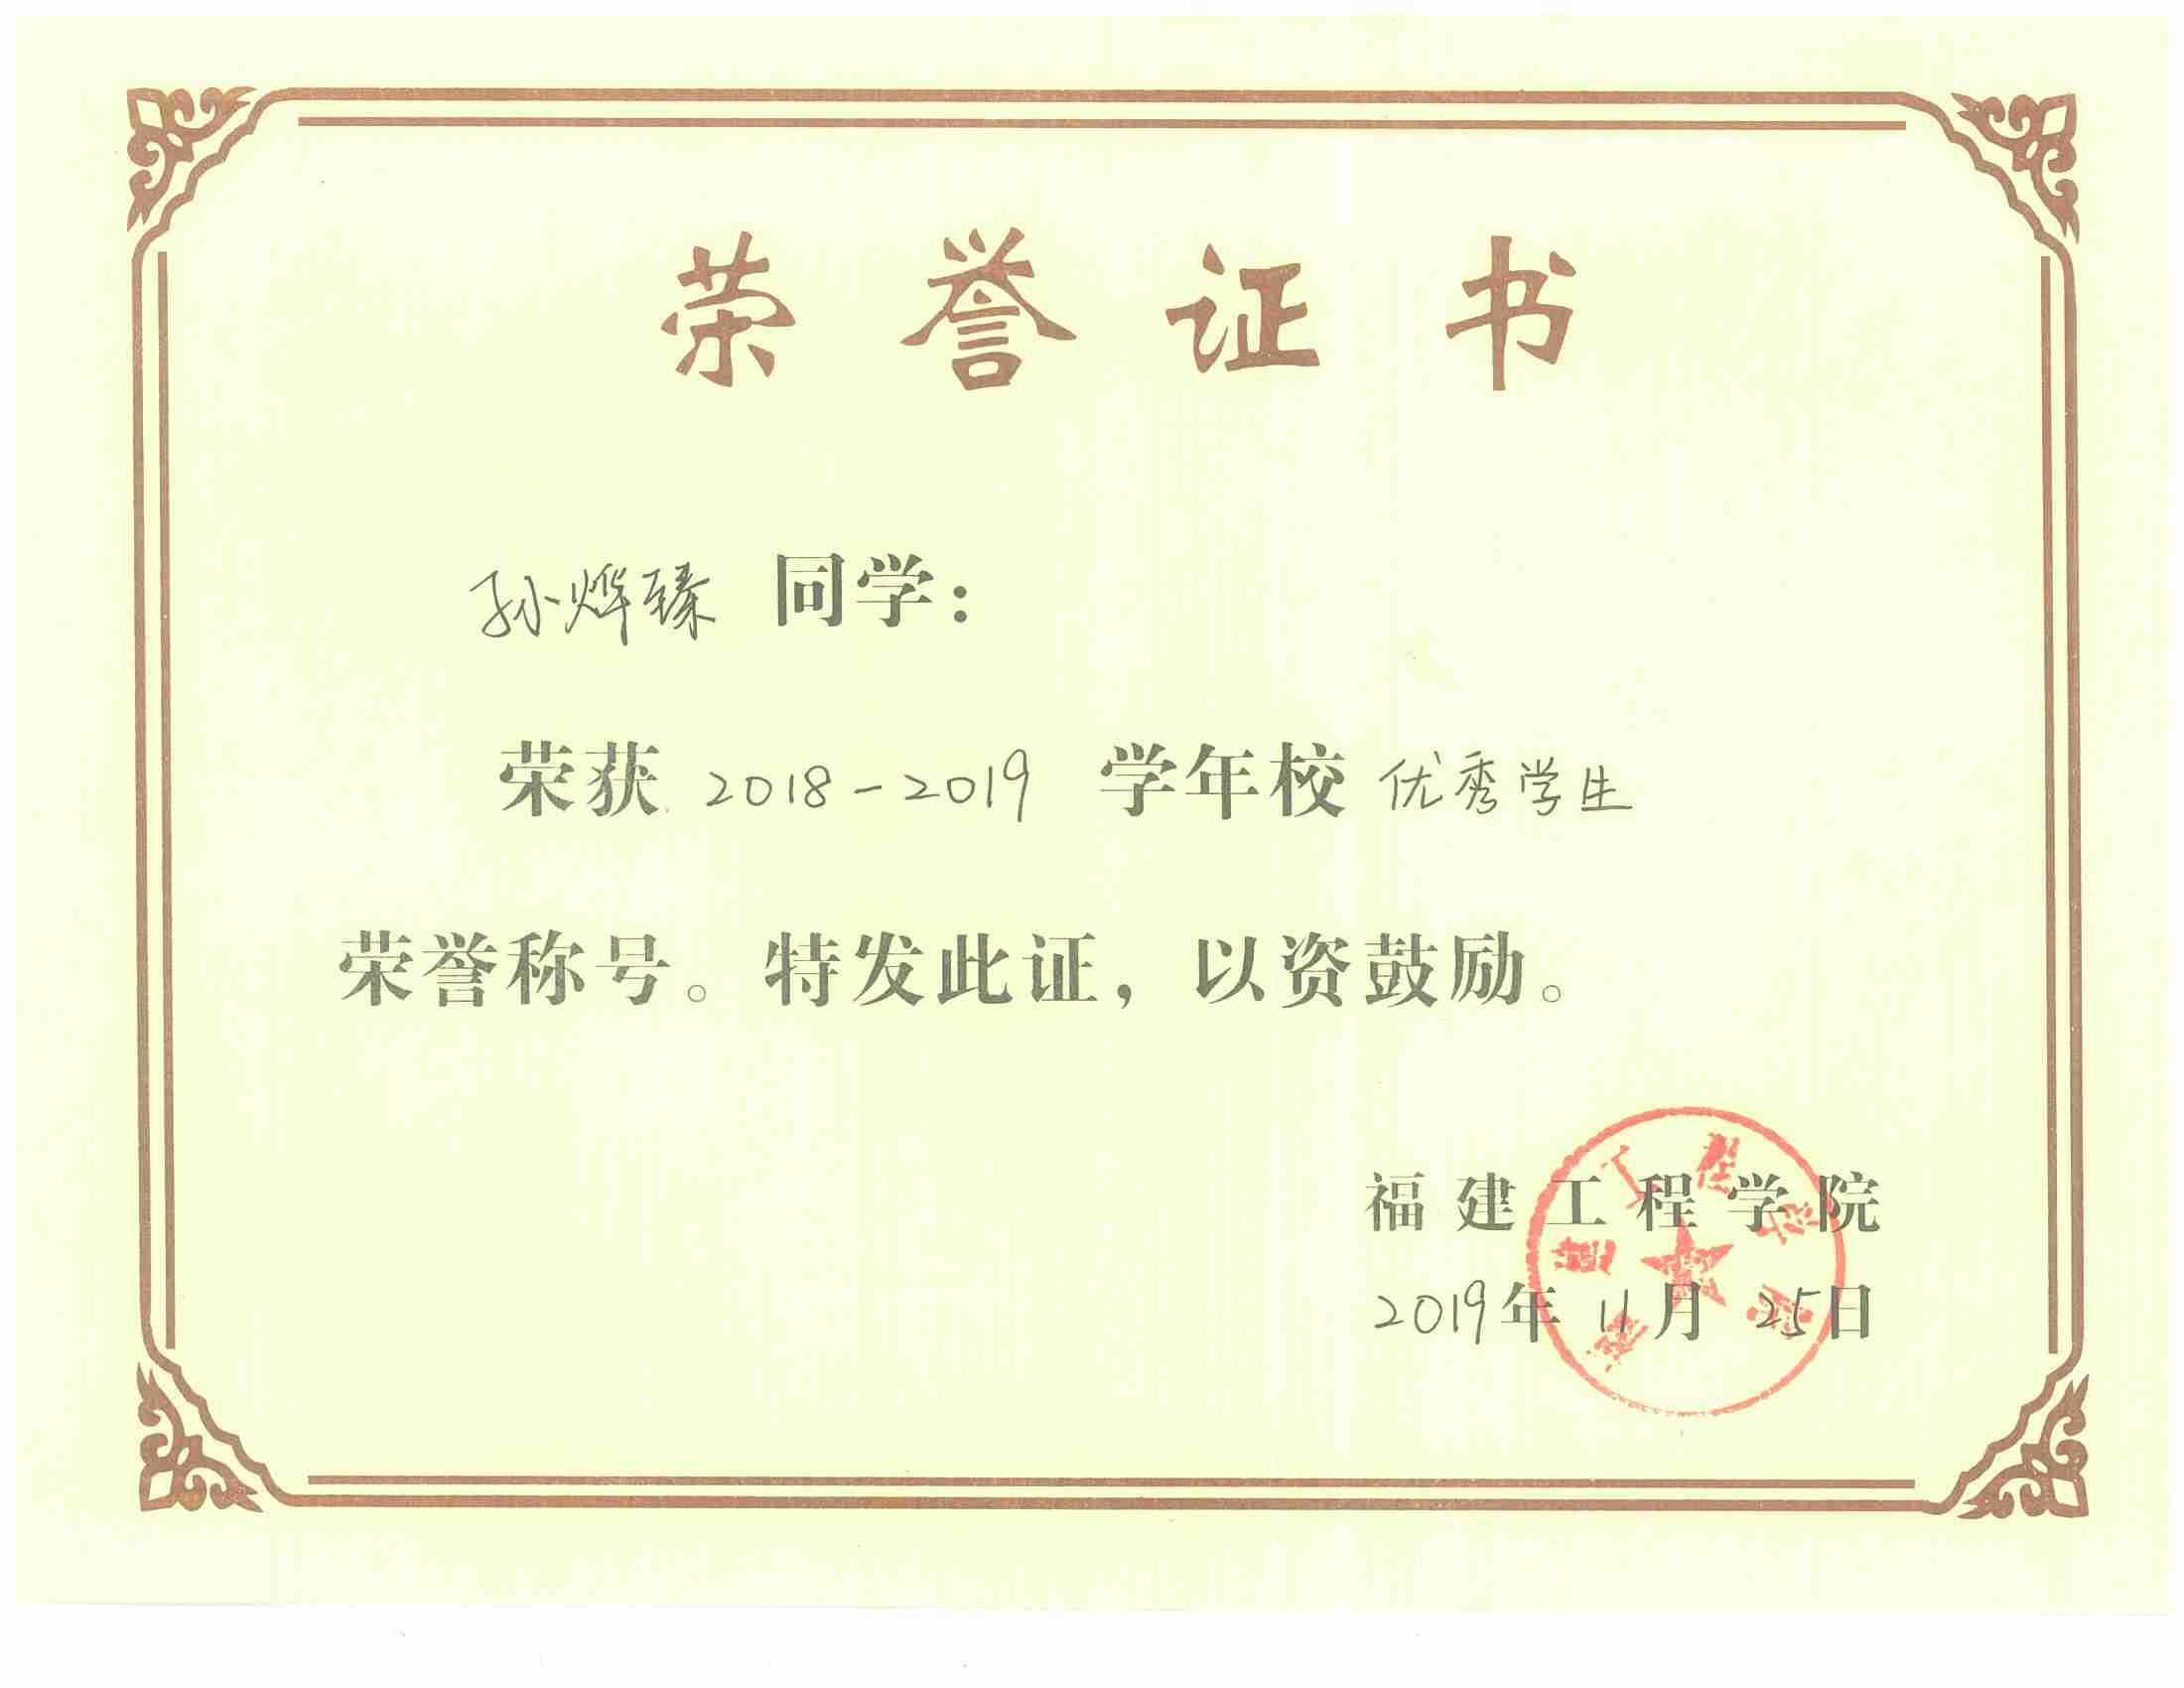 荣誉证书
孙烨臻 同学：
荣获 2018-2019 学年校 优秀学生
荣誉称号。特发此证，以资鼓励。
福建工程学院
2019年 11月 25日
福建工程学院